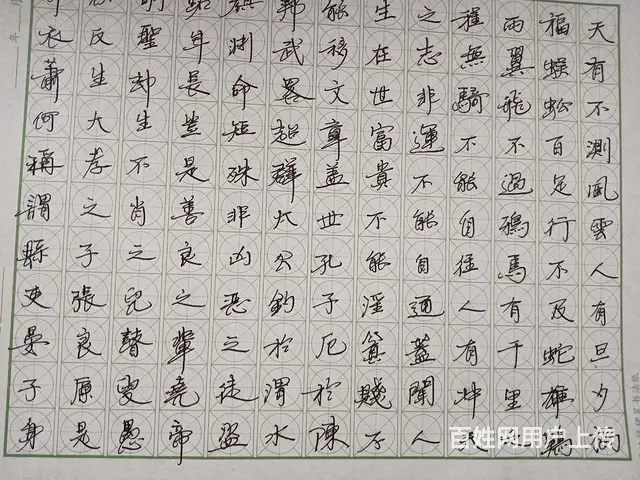 天有不測風雲人有旦夕禍
福蜈蚣百足行不及蛇雄鷄
兩翼飛不過鴉馬有千里之
程無騎不能自往人有冲天
之志非運不能自通蓋聞人
生在世富貴不能淫貧賤不
能移文章盖世孔子厄於陳
邦武畧超群太公釣於渭水
顏渊命短殊非凶惡之徒盜
年長豈是善良之輩堯帝
明聖却生不肖之兒瞽叟愚
反生大孝之子張良原是
衣蕭何稱謂縣吏晏子身
百姓网用户上传